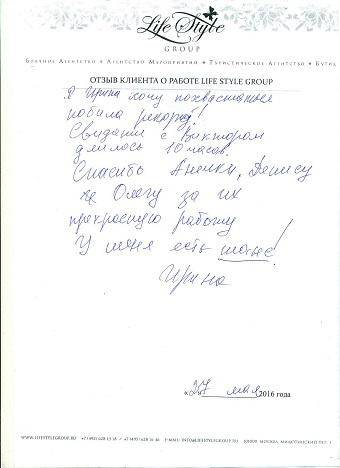 Life Style
GROUP
Брачное Агентство • Агентство Мероприятий • Туристическое Агентство • Бутик
ОТЗЫВ КЛИЕНТА О РАБОТЕ LIFE STYLE GROUP
Я Ирина хочу похвастаться
побила рекорд!
Свидание с Виктором
длилось 10 часов.
Спасибо Денису
Олегу за их
прекрасную работу
У меня есть шанс!
Ирина
«27» мая 2016 года
WWW.LIFESTYLEGROUP.RU